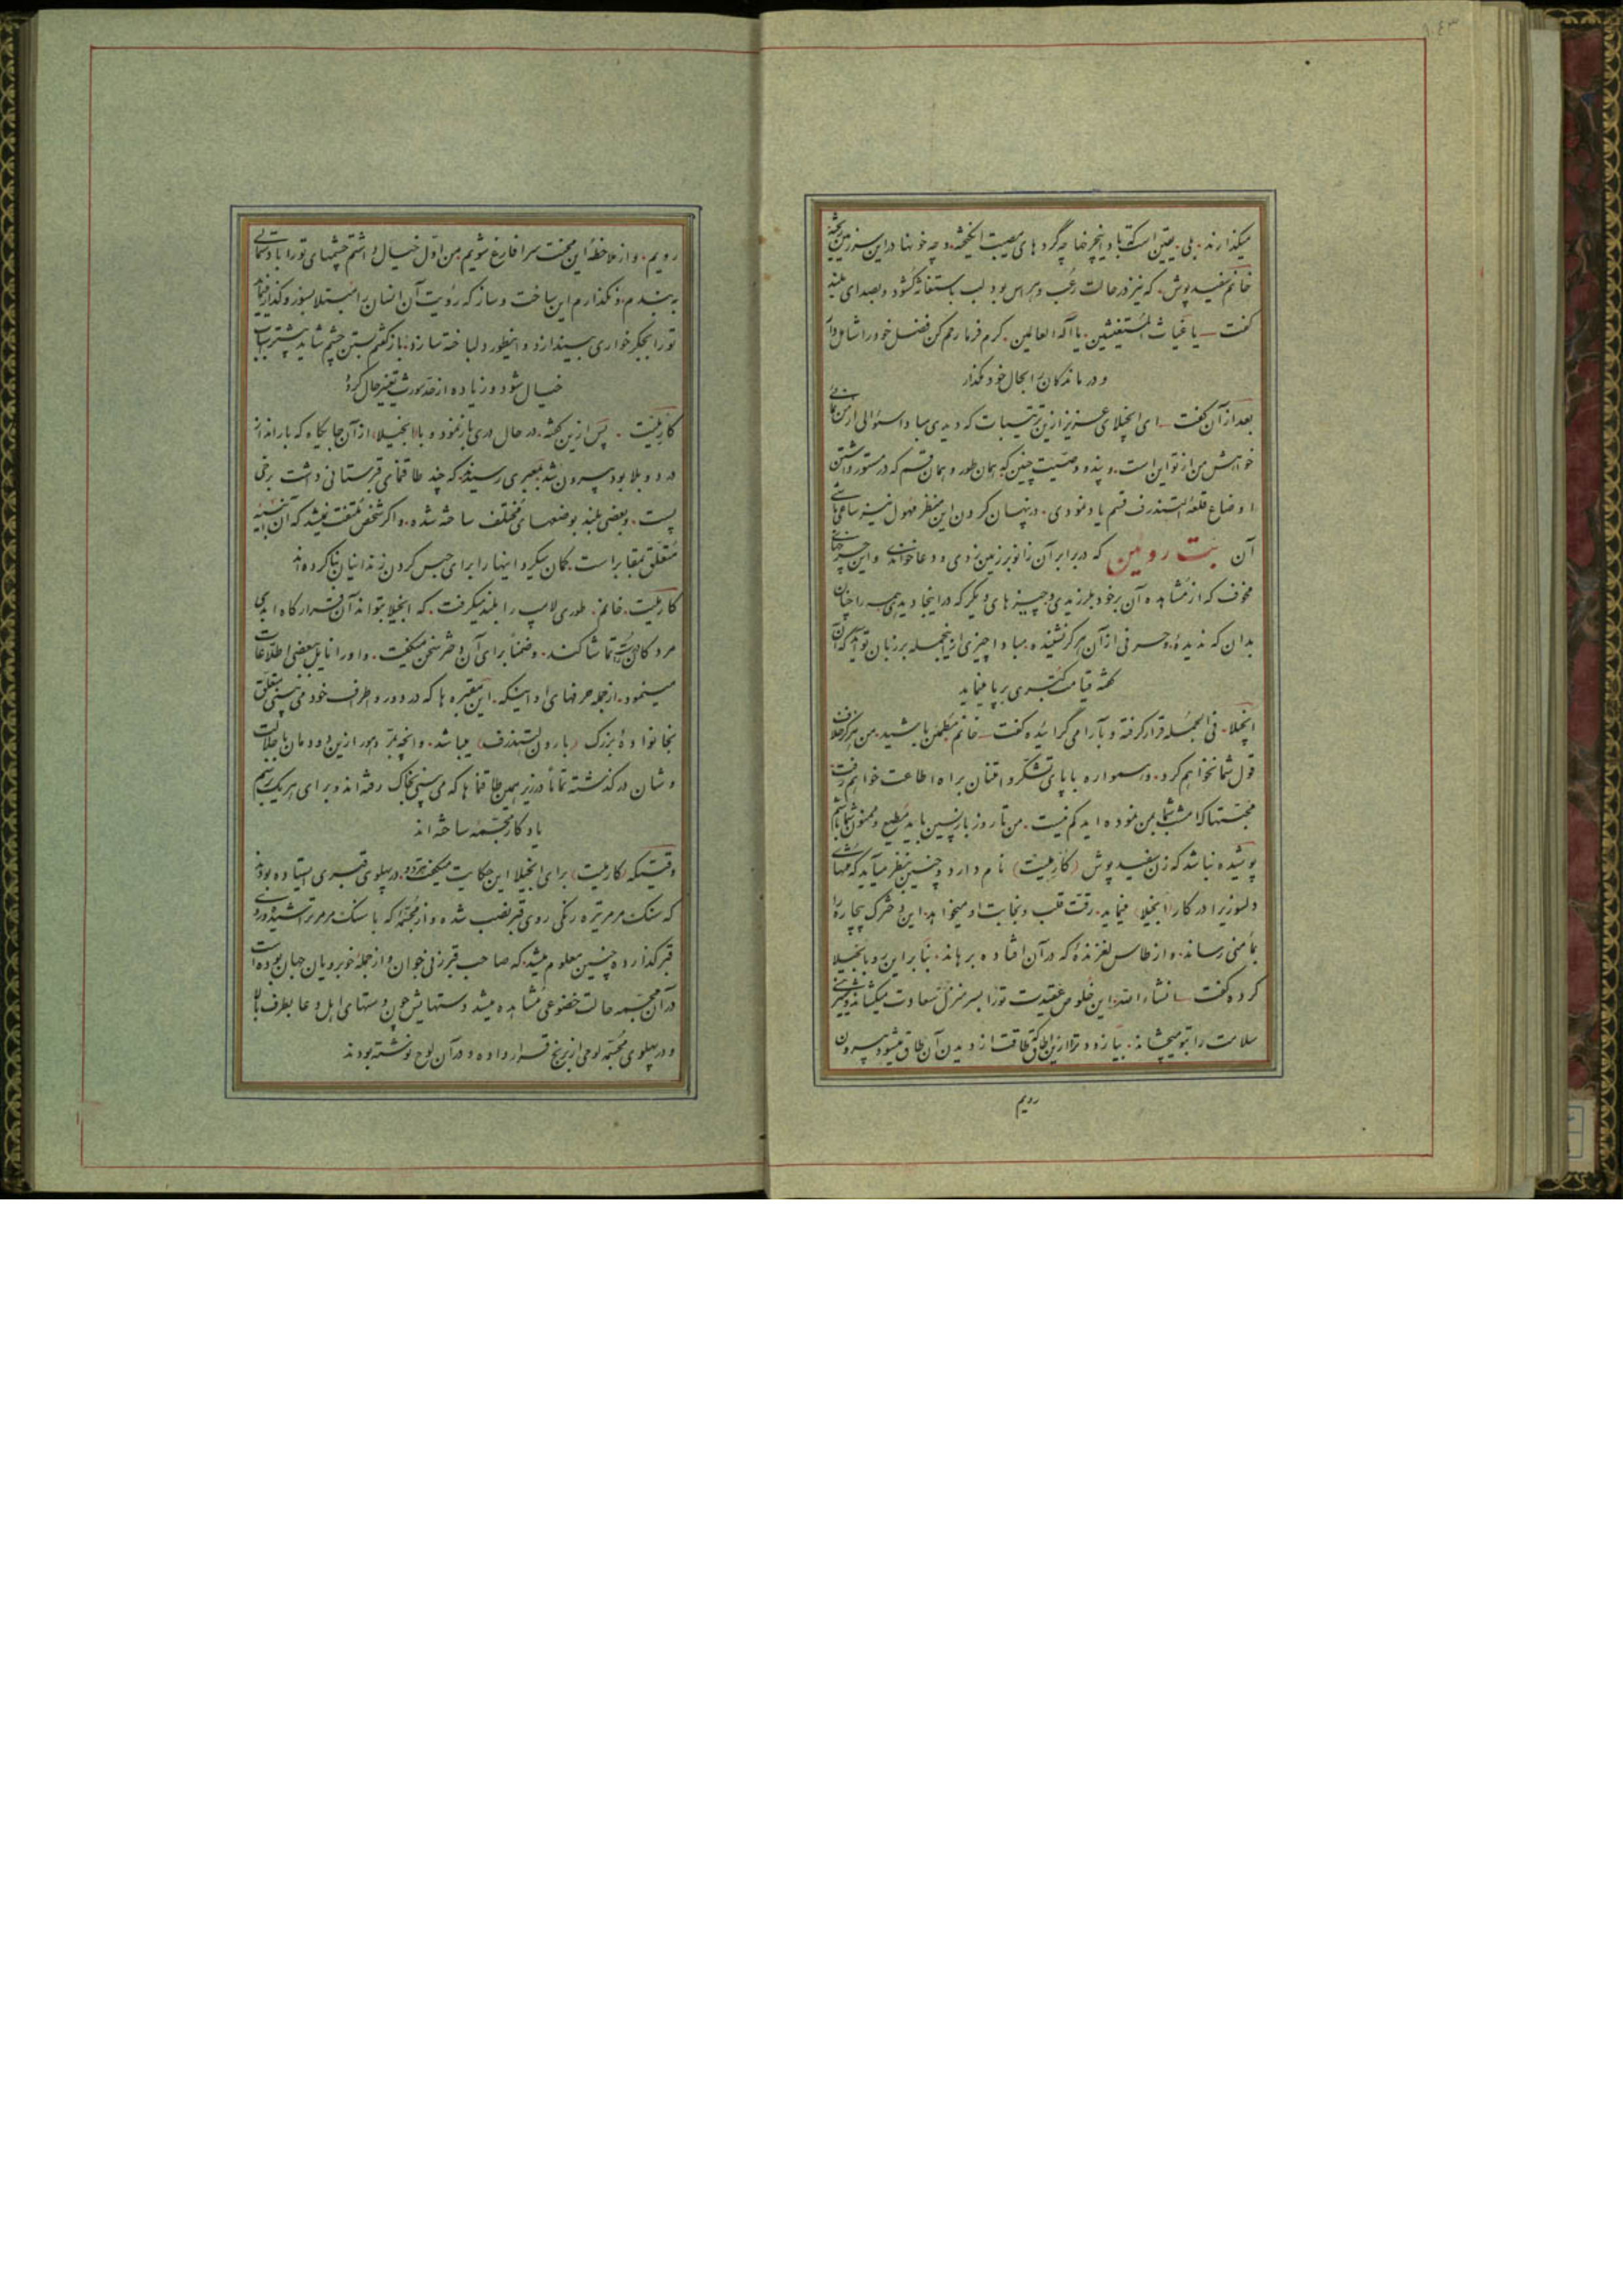 میکذارند. بلی یقین است که باد اینچرخها چه گردهای مصیبت انگیخته. و چه خونها در این سرزمین ریخته
خانم سفید پوش. که نیز در حالت رعب و هراس بود لب باستغاثه گشود و بصدای بلند
گفت ـ یا غیاث المستغیثین. یا اله العالمین. کرم فرما رحم کن فضل خود را شامل دار
و درماندکان را بحال خود مگذار
بعد از آن گفت ـ ای انجیلای عزیز از این ترتیبات که دیدی مبادا سئوالی از من
خواهش من از تو این است. و پند و وصیت چنین که همان طور و همان قسم که در مستور داشتن
اوضاع قلعه لستندرف قسم یاد نمودی. در پنهان کردن این منظر مهول نیز ساعی باشی
آن بت روئین که در برابر آن زانو بر زمین زدی و دعا خواندی و این چرخهای
مخوف که از مشاهده آن برخود بلرزیدی و چیزهای دیگر که در اینجا دیدی همه را چنان
بدان که ندیدهٔ. و حرفی از آن هرگز نشنیده. مبادا چیزی از اینجمله بر زبان تو آید که آن
کشه قیامت کبری برپا نماید
انجیلا. فی الجمله قرار گرفته و بآرامی گرائیده گفت ـ خانم مطمئن باشید. من هرگز خلاف
قول شما نخواهم کرد. و همواره با پای تشکر و امتنان براه اطاعت خواهم رفت
محبتها که امشب شما بمن نموده اید کم نیست. من تا روز بازپسین باید مطیع و ممنون شما باشم
پوشیده نباشد که زن سفید پوش (کارنیت) نام دارد و چنین بنظر میآید که منتهای
دلسوزی را در کار (انجیلا) مینماید. رقت قلب و نجابت او میخواهد. این دخترک بیچاره را
بمأمنی رساند. و از طاس لغزندهٔ که در آن افتاده برهاند. بنابراین رو بانجیلا
کرده گفت ـ انشاءالله این خلوص عقیدت تو را بسر منزل سعادت میکشاند و شیرینی
سلامت را بتو میچشاند. بیا زود تر از این اطاق که طاقت از دیدن آن طاق میشود بیرون
رویم
رویم. و از ملاحظه این سخت سرا فارغ شویم. من اول خیال داشتم چشمهای تو را با دستمالی
به بندم. و نگذارم این ساخت و ساز که رؤیت آن انسان را مبتلا بسوز و گداز مینماید
تو را بجگر خواری بیندازد و اینطور دلباخته سازد. باز گفتم بستن چشم شاید بیشتر اسباب
خیال شود و زیاده از حد مورث تغییر حال گردد
کارنیت ـ پس از این گفته. در حال دری باز نمود و با (انجیلا) از آن جایگاه که بارانداز
درد و بلا بود بیرون شد بمعبری رسیدند که چند طاقنمای قبرستانی داشت برخی
پست. و بعضی بلند بوضعهای مختلف ساخته شده. و اگر شخص ملتفت نمیشد که آن ابنیه
متعلق بمقابر است. گمان میکرد اینها را برای حبس کردن زندانیان بنا کرده اند
کارنیت. خانم. طوری لامپ را بلند میگرفت. که انجیلا بتواند آن قرارگاه ابدی
مردگان را تماشا کند. و ضمناً برای آن دختر سخن میگفت. و او را نایل ببعضی اطلاعات
مینمود. از جمله حرفهای او اینکه. این مقبره ها که در دور و اطراف خود می بینی متعلق
بخانوادهٔ بزرک (بارون لستندرف) میباشد. و آنچه نامور از این دودمان با جلالت
و شان درگذشته تماماً در زیر همین طاقنما ها که می بینی بخاک رفته اند و برای هر یک برسم
یادگار مجسمه ساخته اند
وقتیکه (کارنیت) برای انجیلا این حکایت میگفت هر دو. در پهلوی قبری ایستاده بودند
که سنگ مرمر تیره رنگی روی قبر نصب شده و از مجسمه که با سنگ مرمر تراشیده و روی
قبر گذارده چنین معلوم میشد که صاحب قبر زنی جوان و از جمله خوبرویان جهان بوده است
در آن مجسمه حالت خضوعی مشاهده میشد دستهایش چون دستهای اهل دعا بطرف بالا
و در پهلوی مجسمه لوحی از برنج قرار داده و در آن لوح نوشته بودند